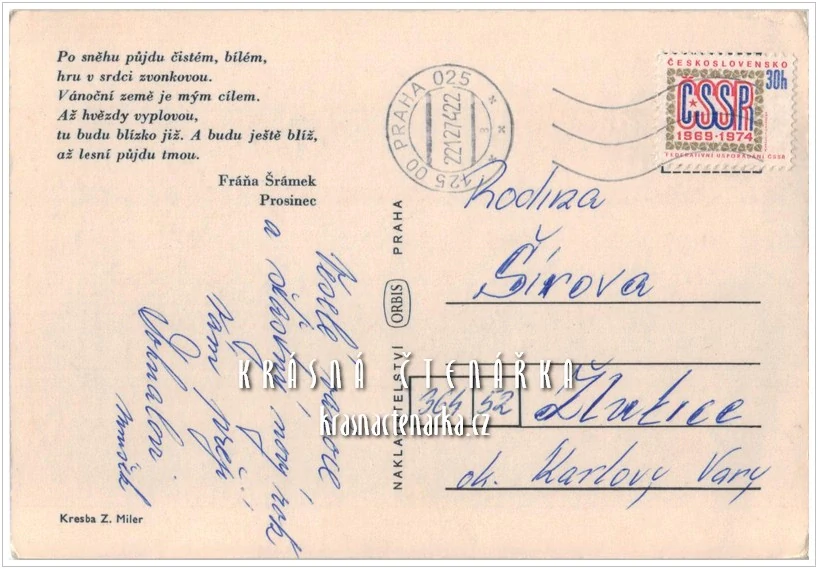 Po sněhu půjdu čistém, bílém,
hru v srdci zvonkovou.
Vánoční země je mým cílem.
Až hvězdy vyplovou,
tu budu blízko již. A budu ještě blíž,
až lesní půjdu tmou.
Fráňa Šrámek
Prosinec
Veselé vánoce
a šťastný nový rok
Vám přejí
Kresba Z. Miler
NAKLADATELSTVÍ ORBIS PRAHA
425 00 PRAHA 025
22127422
ČESKOSLOVENSKO
30h
ČSSR
1969-1974
FEDERATIVNÍ USPOŘÁDÁNÍ ČSSR
Rodina
Šírova
364 52 Žlutice
ok. Karlovy Vary
KRÁSNÁ ČTENÁŘKA
krasnactenarka.cz